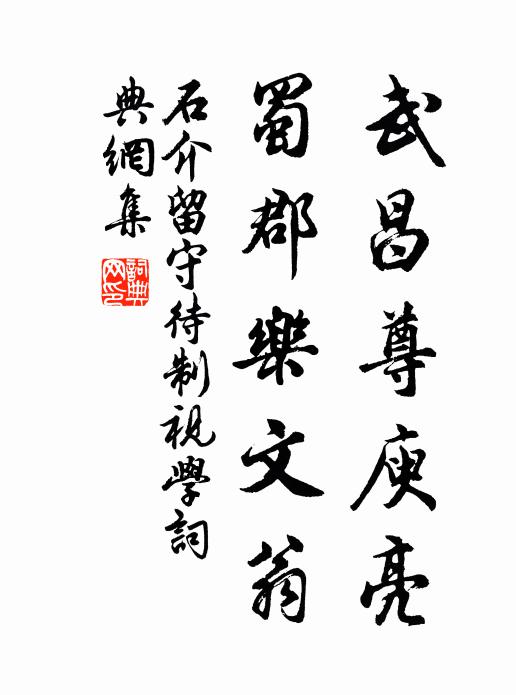 武昌尊庾亮
蜀郡樂文翁
石介留守待制視學詞
典網集
詞典
网印